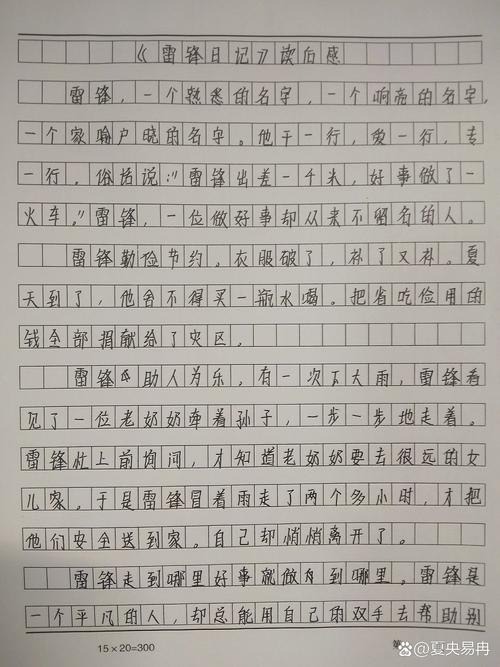 《雷锋日记》读后感
雷锋，一个熟悉的名字，一个响亮的名字，
一个家喻户晓的名字。他干一行，爱一行，专
一行。俗话说：“雷锋出差一千米，好事做了一
火车。”雷锋，一位做好事却从来不留名的人。
雷锋勤俭节约。衣服破了，补了又补。夏
天到了，他舍不得买一瓶水喝。把省吃俭用的
钱全部捐献给了灾区。
雷锋助人为乐，有一次下大雨，雷锋看
见了一位老奶奶牵着孙子，一步一步地走着。
雷锋忙上前询问，才知道老奶奶要去很远的女
儿家。于是雷锋冒着雨走了两个多小时，才把
他们安全送到家。自己却悄悄离开了。
雷锋走到哪里好事就做到哪里。雷锋是
一个平凡的人，却总能用自己的双手去帮助别
15×20=300
第
夏央易冉